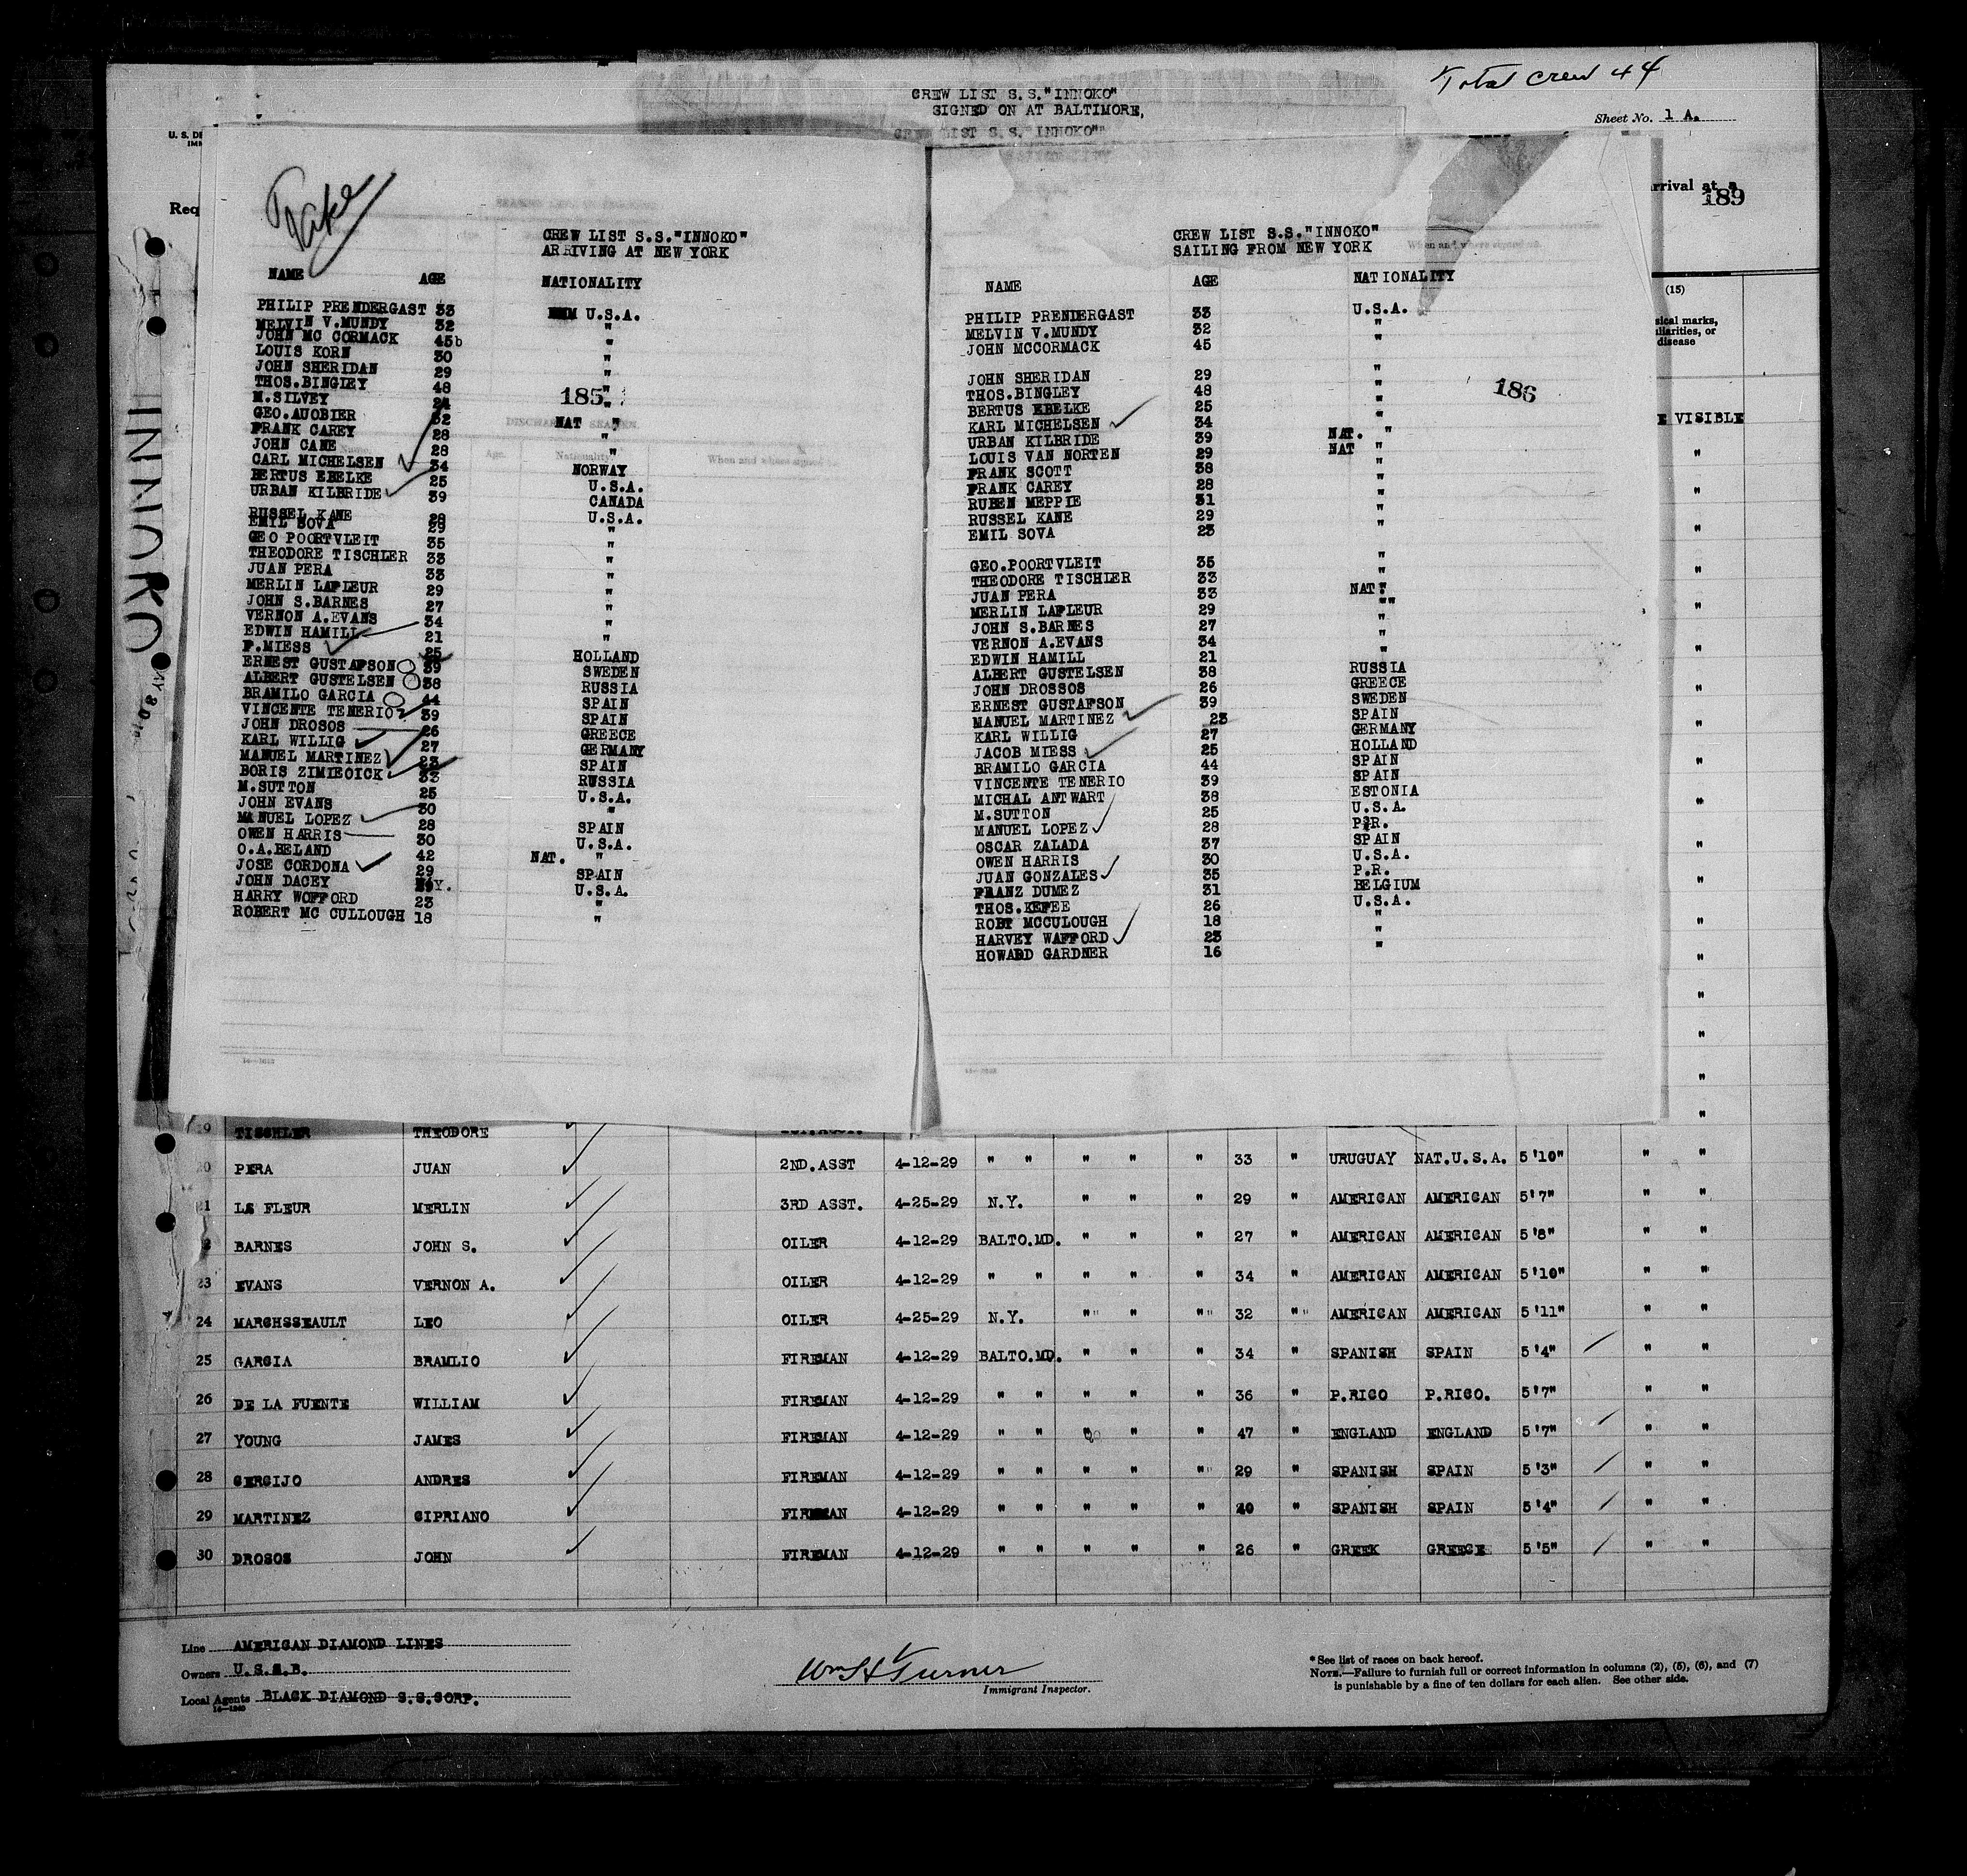 Total crew 44
CREW LIST S.S."INNOKO"
SIGNED ON AT BALTIMORE,
CREW LIST S.S. "INNOKO"
Sheet No. 1 A.
Req
arrival at a
189
(15)
marks,
or
disease
VISIBLE
INNOKO
CREW LIST S.S."INNOKO"
ARRIVING AT NEW YORK
NAME AGE NATIONALITY
PHILIP PRENDERGAST 33 U.S.A.
MELVIN V.MUNDY 32 "
JOHN MC CORMACK 45b "
LOUIS KORN 30 "
JOHN SHERIDAN 29 "
THOS.BINGLEY 48 "
M.SILVEY 24 "
185
GEO.AUOBIER 32 NAT "
FRANK CAREY 28 "
JOHN CANE 28 "
CARL MICHELSEN 34 NORWAY
BERTUS EBELKE 25 U.S.A.
URBAN KILBRIDE 39 CANADA
RUSSEL KANE 29 U.S.A.
EMIL SOVA 29
GEO POORTVLEIT 35 "
THEODORE TISCHLER 33 "
JUAN PERA 33 "
MERLIN LAFLEUR 29 "
JOHN S.BARNES 27 "
VERNON A.EVANS 34 "
EDWIN HAMILL 21 "
P.MIESS 25 HOLLAND
ERNEST GUSTAFSON 39 SWEDEN
ALBERT GUSTELSEN 38 RUSSIA
BRAMILO GARCIA 44 SPAIN
VINCENTE TENERIO 39 SPAIN
JOHN DROSOS 26 GREECE
KARL WILLIG 27 GERMANY
MANUEL MARTINEZ 23 SPAIN
BORIS ZIMIEOICK 33 RUSSIA
M.SUTTON 25 U.S.A.
JOHN EVANS 30 "
MANUEL LOPEZ 28 SPAIN
OWEN HARRIS 30 U.S.A.
O.A.BELAND 42 NAT. "
JOSE CORDONA 29 SPAIN
JOHN DACEY U.S.A.
HARRY WOFFORD 23 "
ROBERT MC CULLOUGH 18 "
CREW LIST S.S."INNOKO"
SAILING FROM NEW YORK
NAME AGE NATIONALITY
PHILIP PRENDERGAST 33 U.S.A.
MELVIN V.MUNDY 32 "
JOHN MCCORMACK 45 "
JOHN SHERIDAN 29 "
THOS.BINGLEY 48 "
186
BERTUS EBELKE 25 "
KARL MICHELSEN 34 "
URBAN KILBRIDE 39 NAT. "
LOUIS VAN NORTEN 29 NAT "
FRANK SCOTT 38 "
FRANK CAREY 28 "
RUBEN MEPPIE 31 "
RUSSEL KANE 29 "
EMIL SOVA 23 "
GEO.POORTVLEIT 35 "
THEODORE TISCHLER 33 "
JUAN PERA 33 NAT "
MERLIN LAFLEUR 29 ""
JOHN S.BARNES 27 "
VERNON A.EVANS 34 "
EDWIN HAMILL 21 "
ALBERT GUSTELSEN 38 RUSSIA
JOHN DROSSOS 26 GREECE
ERNEST GUSTAFSON 39 SWEDEN
MANUEL MARTINEZ 23 SPAIN
KARL WILLIG 27 GERMANY
JACOB MIESS 25 HOLLAND
BRAMILO GARCIA 44 SPAIN
VINCENTE TENERIO 39 SPAIN
MICHAL ANTWART 38 ESTONIA
M.SUTTON 25 U.S.A.
MANUEL LOPEZ 28 P.R.
OSCAR ZALADA 37 SPAIN
OWEN HARRIS 30 U.S.A.
JUAN GONZALES 35 P.R.
FRANZ DUMEZ 31 BELGIUM
THOS.KEFEE 26 U.S.A.
ROBT MCCULOUGH 18 "
HARVEY WAFFORD 23 "
HOWARD GARDNER 16 "
TISCHLER THEODORE
20 PERA JUAN 2ND.ASST 4-12-29 " " " " " 33 " URUGUAY NAT.U.S.A. 5'10" " "
21 LA FLEUR MERLIN 3RD ASST. 4-25-29 N.Y. " " " 29 " AMERICAN AMERICAN 5'7" " "
BARNES JOHN S. OILER 4-12-29 BALTO.MD. " " " 27 " AMERICAN AMERICAN 5'8" " "
23 EVANS VERNON A. OILER 4-12-29 " " " " " 34 " AMERICAN AMERICAN 5'10" " "
24 MARCHSSEAULT LEO OILER 4-25-29 N.Y. " " " 32 " AMERICAN AMERICAN 5'11" " "
25 GARCIA BRAMLIO FIREMAN 4-12-29 BALTO.MD. " " " 34 " SPANISH SPAIN 5'4" " "
26 DE LA FUENTE WILLIAM FIREMAN 4-12-29 " " " " " 36 " P.RICO P.RICO. 5'7" " "
27 YOUNG JAMES FIREMAN 4-12-29 " " " " " 47 " ENGLAND ENGLAND 5'7" " "
28 CERGIJO ANDRES FIREMAN 4-12-29 " " " " " 29 " SPANISH SPAIN 5'3" " "
29 MARTINEZ CIPRIANO FIREMAN 4-12-29 " " " " " 40 " SPANISH SPAIN 5'4" " "
30 DROSOS JOHN FIREMAN 4-12-29 " " " " " 26 " GREEK GREECE 5'5" " "
Line AMERICAN DIAMOND LINES
Owners U.S.S.B.
Local Agents BLACK DIAMOND S.S.CORP.
Wm H Turner
Immigrant Inspector.
*See list of races on back hereof.
NOTE.—Failure to furnish full or correct information in columns (2), (5), (6), and (7)
is punishable by a fine of ten dollars for each alien. See other side.